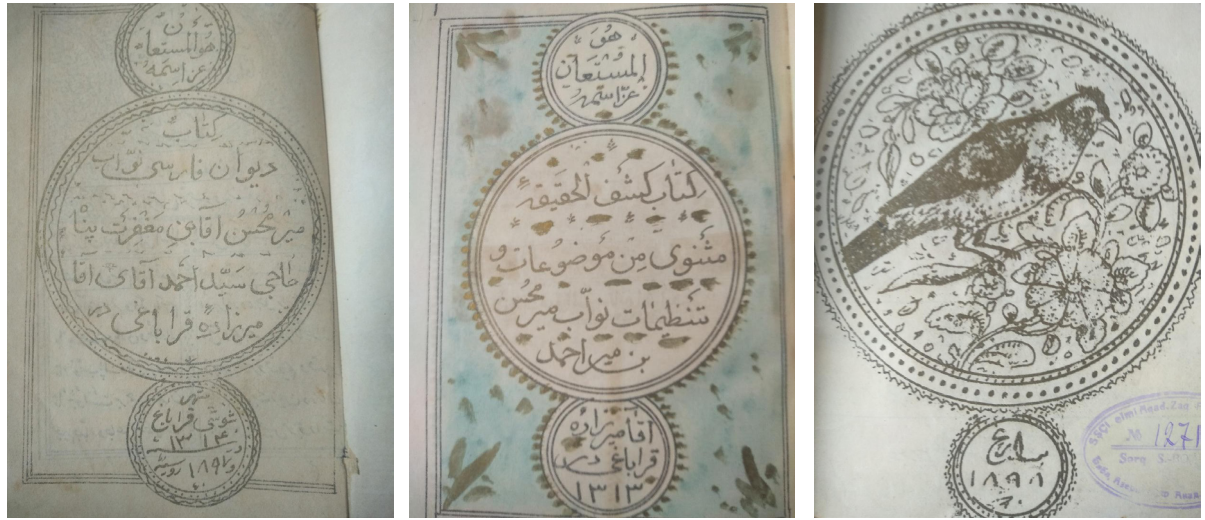 هو المستعان
عز اسمه
کتاب
دیوان فارسی نوّاب
میر محسن آقا بن مغفرت پناه
حاجی سیّد احمد آقای آقا
میرزاده قراباغی در
شهر
شوشی قراباغ
۱۳۱۴
۱۸۹۶
هُوَ
المُسْتَعَان
عزّ اسمُهُ
کِتَاب کَشف الحَقیقهٔ
مَثنَوی مِن مَوضُوعات و
تَنظیمَات نَوّاب میر محسن
بن میر احمد
آقا میرزاده
قراباغی در
۱۳۱۳
۱۸۹۸
№ 1271